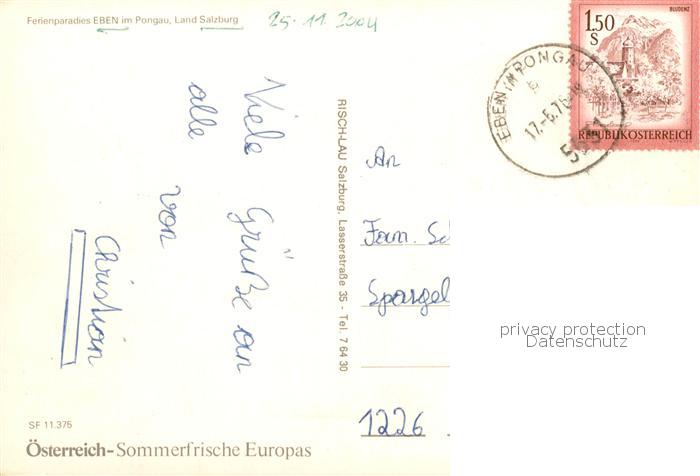 Ferienparadies EBEN im Pongau, Land Salzburg
25.11.2004
Viele Grüße an
alle von
Christian
RISCH-LAU Salzburg, Lasserstraße 35 - Tel. 7 64 30
BLUDENZ
1.50
S
REPUBLIK ÖSTERREICH
EBEN IM PONGAU
17.-6.76
An
Fam.
Spargel
1226
privacy protection
Datenschutz
SF 11.375
Österreich-Sommerfrische Europas